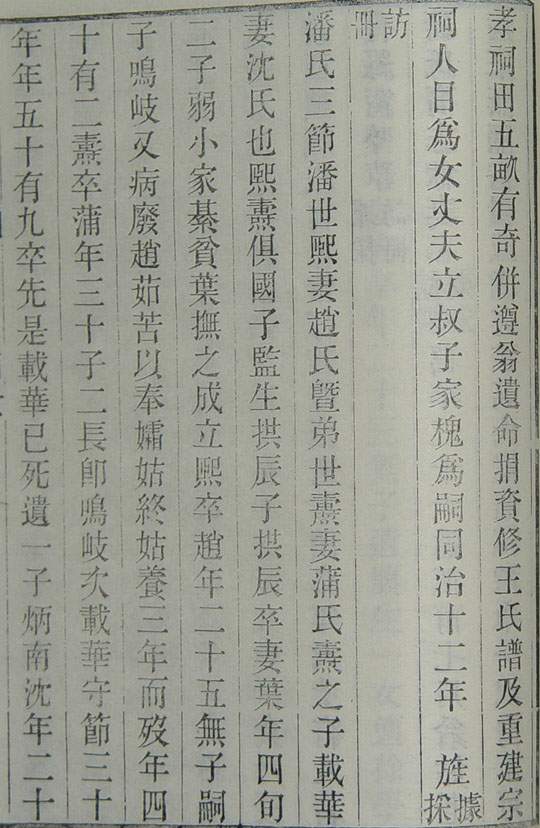 孝祠田五畝有奇併遵翁遺命捐資修王氏譜及重建宗
祠人目爲女丈夫立叔子家槐爲嗣同治十二年 旌據採
訪冊
潘氏三節潘世熙妻趙氏曁弟世燾妻蒲氏燾之子載華
妻沈氏也熙燾俱國子監生拱辰子拱辰卒妻葉年四旬
二子弱小家綦貧葉撫之成立熙卒趙年二十五無子嗣
子鳴岐又病廢趙茹苦以奉孀姑終姑養三年而歿年四
十有二燾卒蒲年三十子二長卽鳴岐次載華守節三十
年年五十有九卒先是載華已死遺一子炳南沈年二十